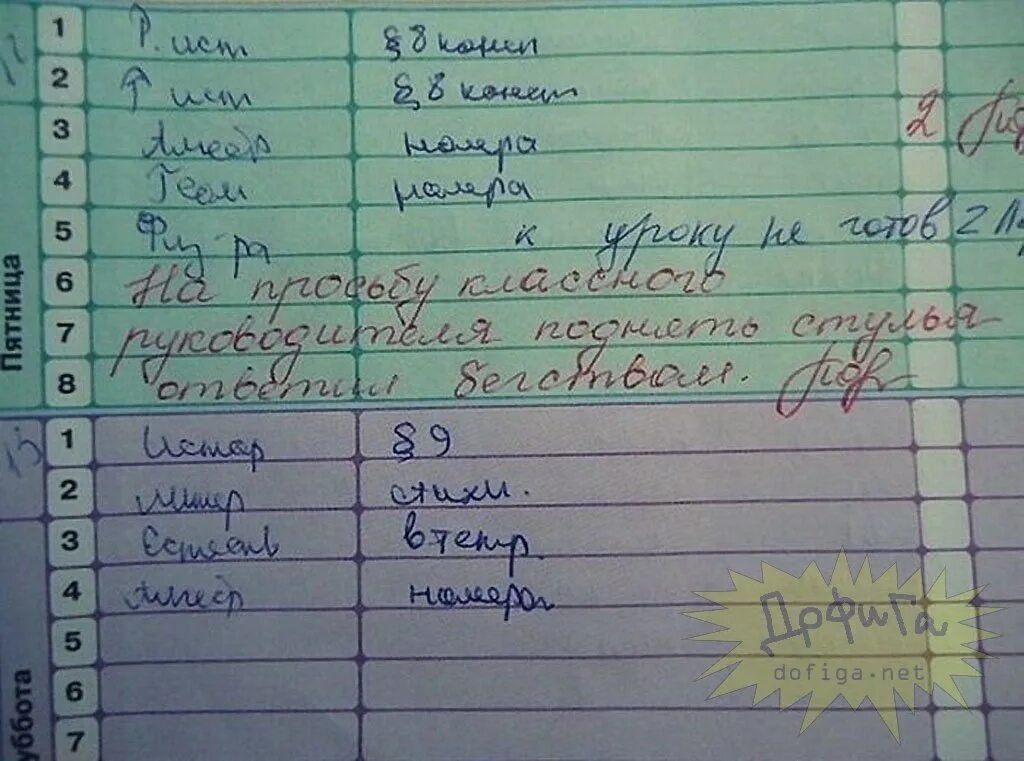 1 Р. ист § 8 консп
2 Р ист § 8 консп
3 Алгебр номера 2
4 Геом номера
5 Физ-ра к уроку не готов 2
6 На просьбу классного
7 руководителя поднять стулья
8 ответил бегством.
Пятница
1 Истор § 9
2 Литер стихи.
3 Естеств в тетр.
4 Алгебр номера
5
6
7
уббота
ДОФИГА
dofiga.net